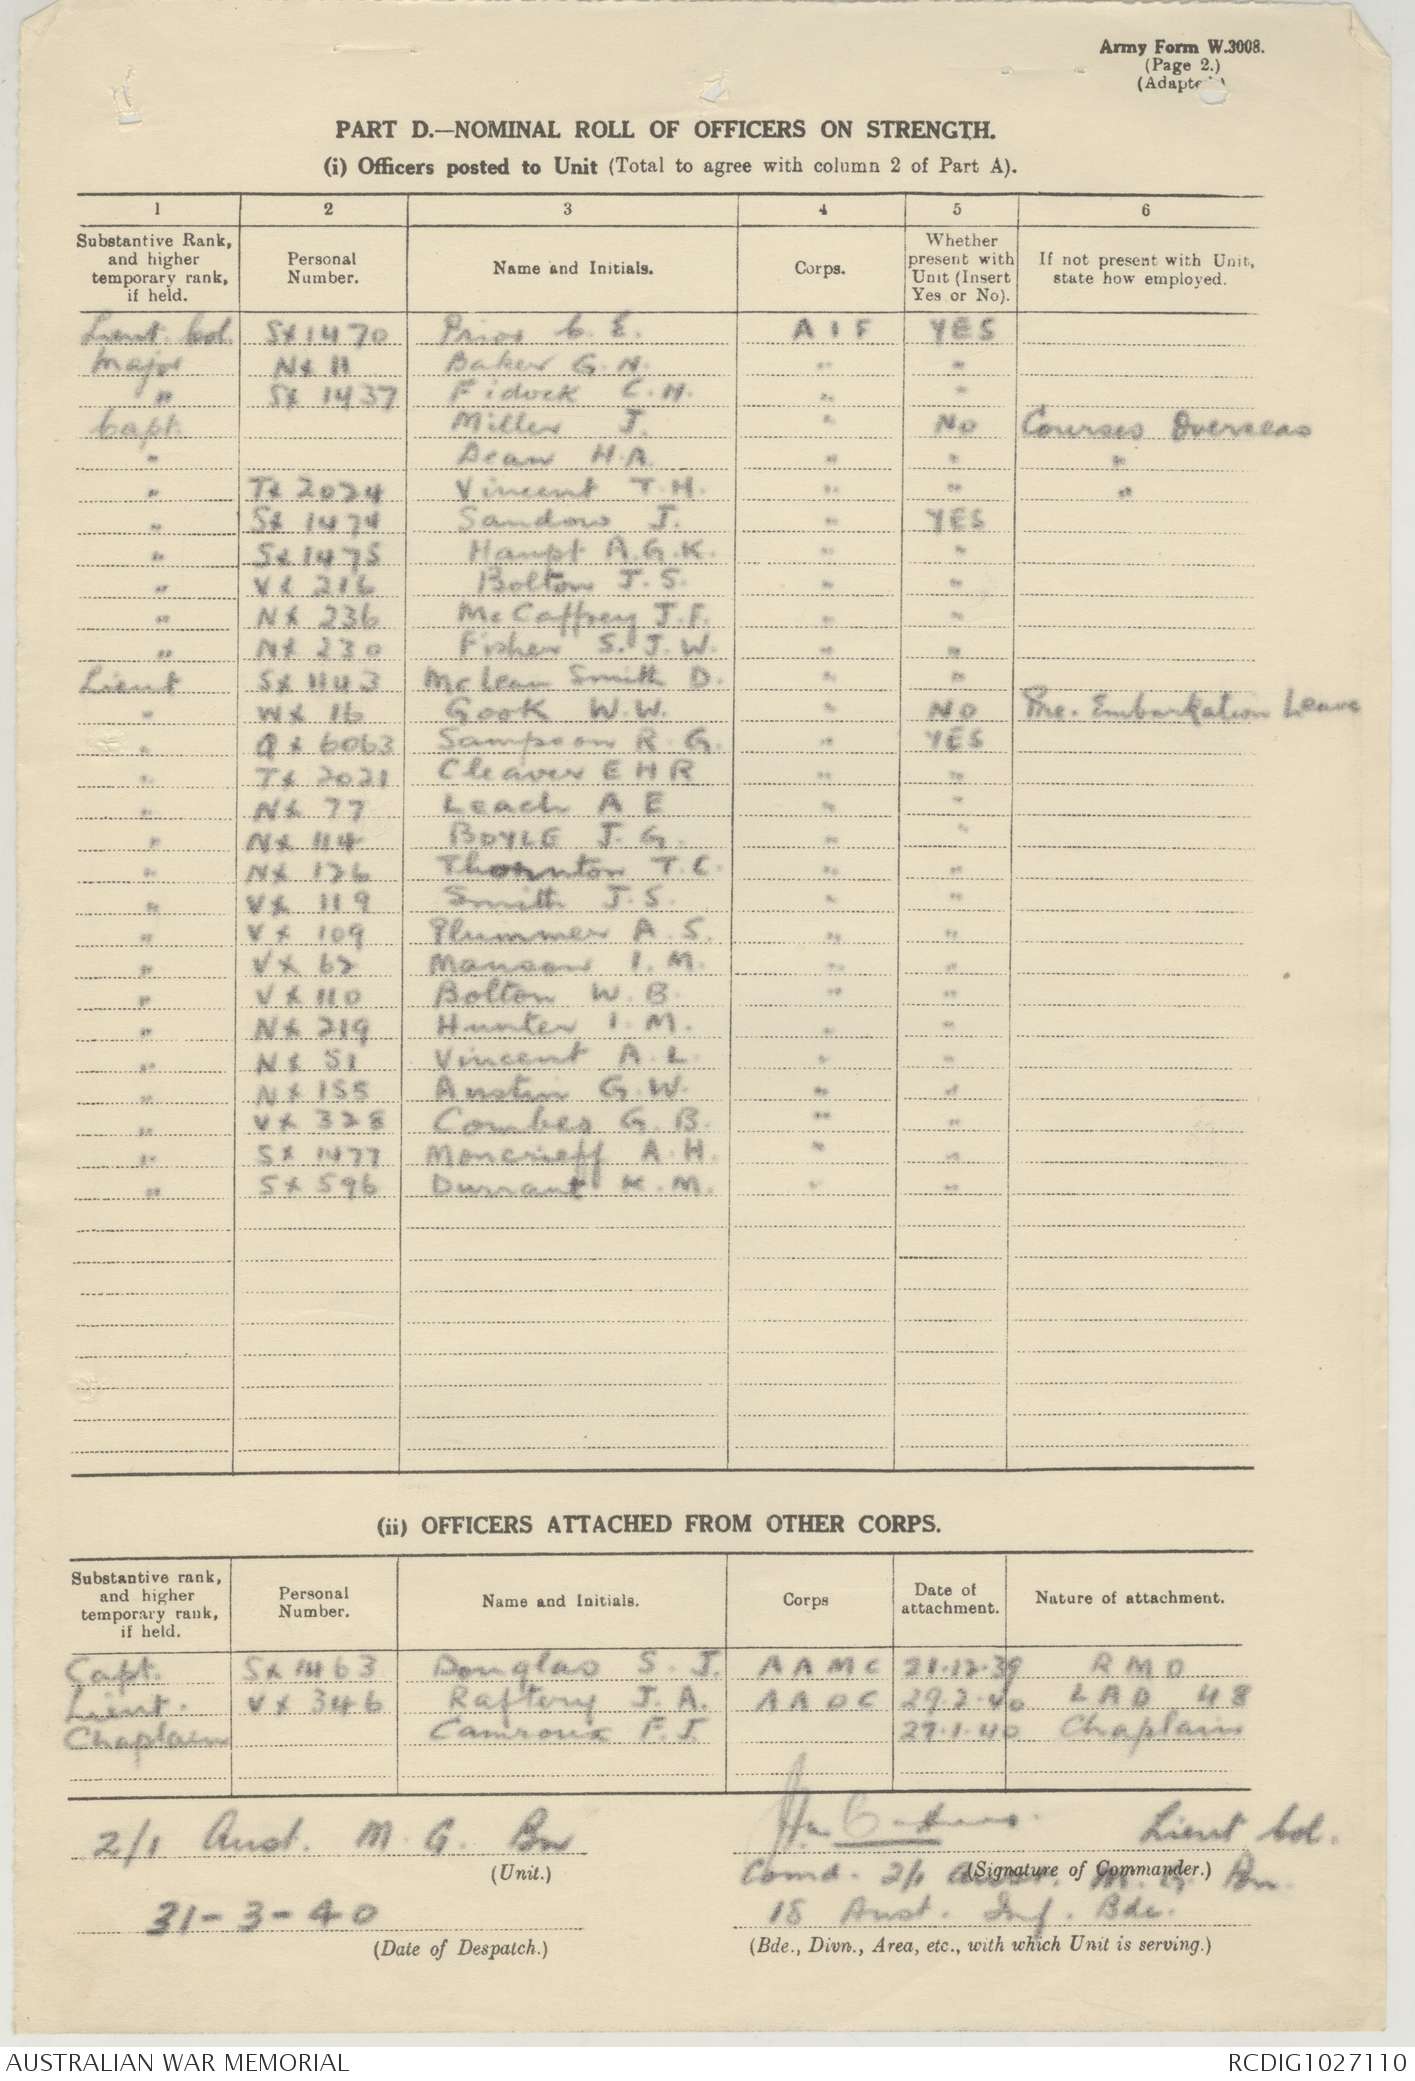 Army Form W.3008.
(Page 2.)
(Adapted)
PART D.—NOMINAL ROLL OF OFFICERS ON STRENGTH.
(i) Officers posted to Unit (Total to agree with column 2 of Part A).
1 2 3 4 5 6
Substantive Rank, and higher temporary rank, if held. Personal Number. Name and Initials. Corps. Whether present with Unit (Insert Yes or No). If not present with Unit, state how employed.
Lieut. Col. Sx 1470 Prior C. E. A I F YES
Major Nx 11 Baker G. N. " "
" Sx 1437 Fidock C. H. " "
Capt. Miller J. " No Courses Overseas
" Dean H.A. " " "
" Tx 2024 Vincent T.H. " " "
" Sx 1474 Sandow J. " YES
" Sx 1475 Haupt A.G.K. " "
" Vx 216 Bolton J.S. " "
" Nx 236 McCaffrey J.F. " "
" Nx 230 Fisher S.J.W. " "
Lieut Sx 1143 McLean Smith D. " "
" Wx 16 Gook W.W. " NO Pre-Embarkation Leave
" Qx 6063 Sampson R.G. " YES
" Tx 2021 Cleaver E H R " "
" Nx 77 Leach A E " "
" Nx 114 BOYLE J.G. " "
" Nx 126 Thornton T.C. " "
" Vx 119 Smith J.S. " "
" Vx 109 Plummer A.S. " "
" Vx 62 Manson I.M. " "
" Vx 110 Bolton W.B. " "
" Nx 219 Hunter I.M. " "
" Nx 51 Vincent A.L. " "
" Nx 155 Austin G.W. " "
" Vx 328 Combes G.B. " "
" Sx 1477 Moncrieff A.H. " "
" Sx 596 Durrant K.M. " "
(ii) OFFICERS ATTACHED FROM OTHER CORPS.
Substantive rank, and higher temporary rank, if held. Personal Number. Name and Initials. Corps Date of attachment. Nature of attachment.
Capt. Sx 1463 Douglas S.J. A A M C 21.12.39 R M O
Lieut. Vx 346 Raftery J.A. A A O C 29.2.40 L A D 48
Chaplain Camroux F.J. 27.1.40 Chaplain
2/1 Aust. M. G. Bn Lieut Col.
(Unit.) (Signature of Commander.)
Comd. 2/1 Aust. M. G. Bn.
31-3-40 18 Aust. Inf. Bde.
(Date of Despatch.) (Bde., Divn., Area, etc., with which Unit is serving.)
AUSTRALIAN WAR MEMORIAL RCDIG1027110